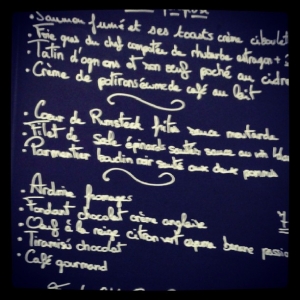 • Saumon fumé et ses toasts crème ciboulet
• Foie gras du chef compotée de rhubarbe estragon +
• Tatin d'oignons et son oeuf poché au cidre
• Crème de potirons écume de café au lait
• Coeur de Rumsteck frites sauce moutarde
• Filet de sole épinards sautés sauce au vin
• Parmentier boudin noir sauté aux deux pommes
• Ardoise fromages
• Fondant chocolat crème anglaise
• Oeuf à la neige citron vert banane passion
• Tiramisù chocolat
• Café gourmand